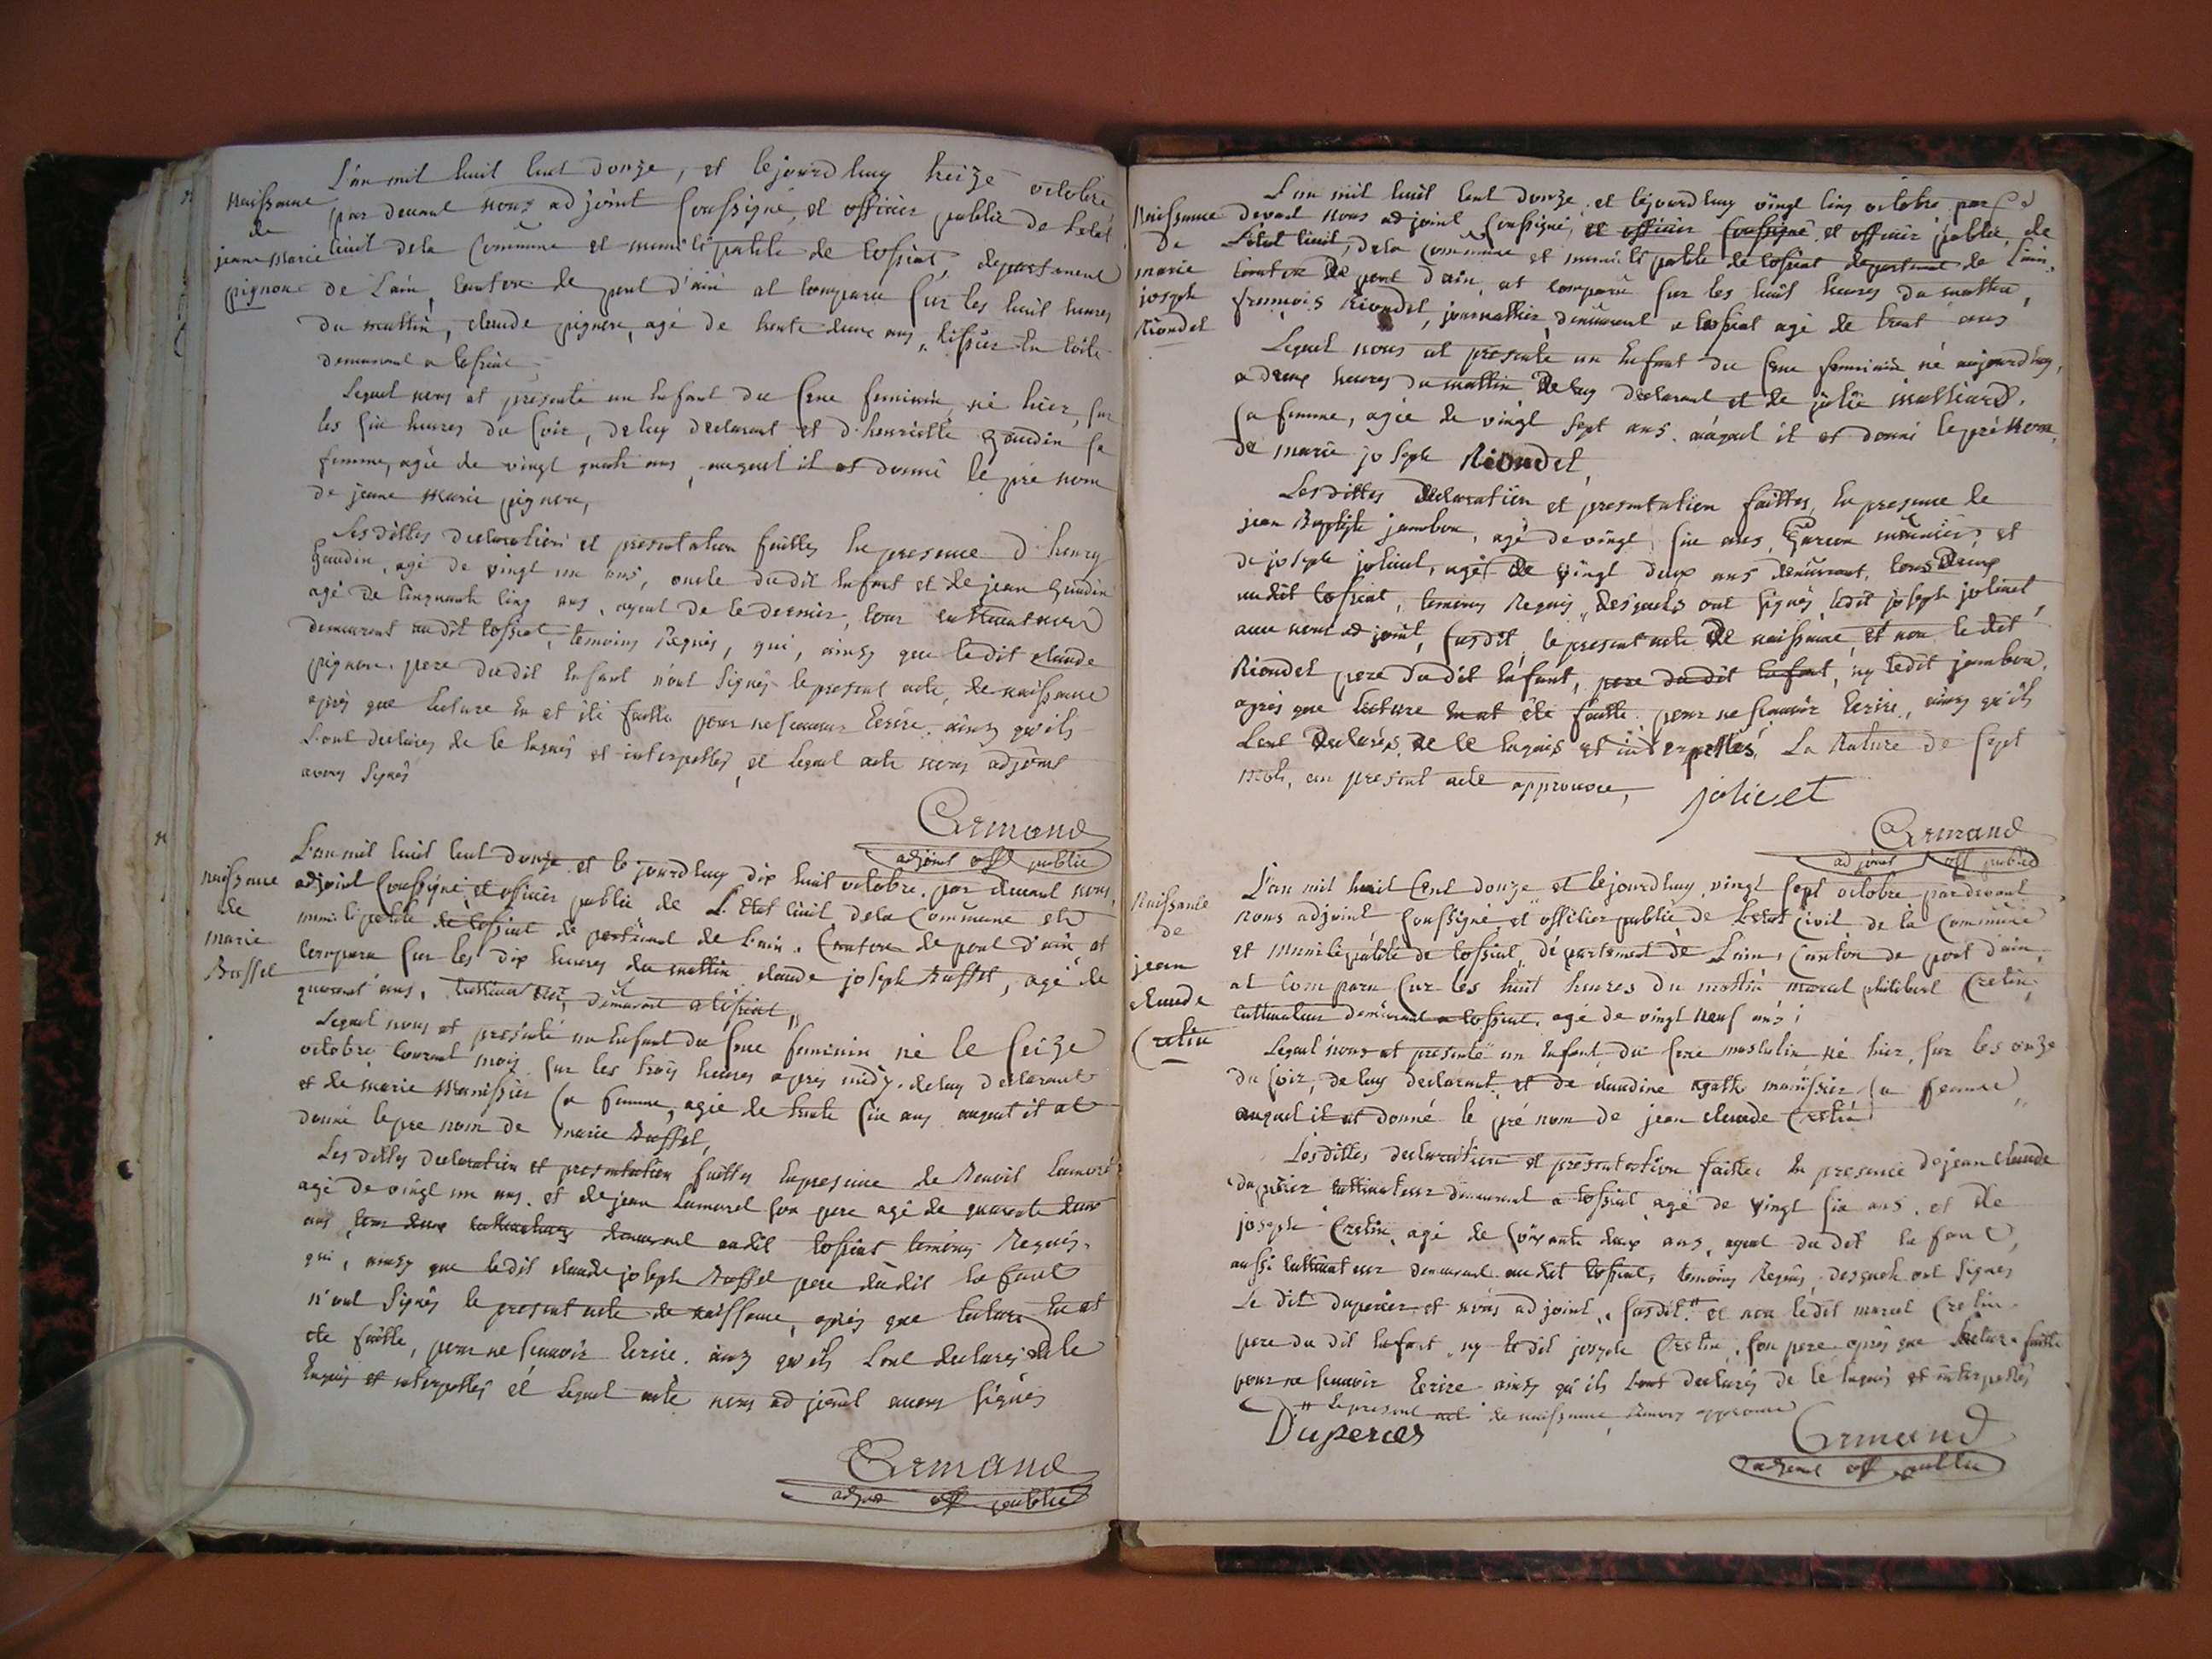 naissance
de
jeanne Marie
pignon
L'an mil huit cent douze, et lejourd huy treize octobre
par devant nous adjoint soussigné, et officier public de L'etat
civil dela Commune et municipalité de tossiat, departement
de L'ain, canton de pont d'ain at comparu sur les huit heures
du mattin, claude pignon, agé de trente deux ans, tissier en toile
demeurant a tossiat
Lequel nous at presenté un Enfant du sexe feminin, né hier, sur
les six heures du soir, deluy declarant et d'henriette gaudin sa
femme, agée de vingt quatre ans, auquel il at donné le pré nom
de jeanne Marie pignon,
Les dittes declaration et presentation faittes En presence d'henry
gaudin, agé de vingt un ans, oncle dudit Enfant et de jean gaudin
agé de cinquante cinq ans, ayeul de le dernier, tous cultivateurs
demeurent audit tossiat, temoins Requis, qui, ainsy que ledit claude
pignon pere dudit Enfant n'ont signés le present acte, de naissance
après que lecture En at été faitte pour ne scavoir Ecrire ainsy qu'ils
L'ont declarés de le Enquis et interpellés, et lequel acte nous adjoint
avons signés
Armand
adjoint off public
naissance
de
marie
Buffet
L'an mil huit cent douze et le jourd huy dix huit octobre, par devant nous,
adjoint soussigné et officier public de L'Etat civil dela Commune et
municipalité de tossiat de partement de L'ain, Canton de pont d'ain at
comparu sur les dix heures du mattin claude joseph Buffet, agé de
quarant ans, demeurant a tossiat,,
Lequel nous at presenté un Enfant du sexe feminin né le seize
octobre courant mois sur les trois heures après midy, deluy declarant
et de marie Manissier sa femme, agée de trente six ans auquel il at
donné le pre nom de Marie Buffet,
Les dittes declaration et presentation faittes En presence de Benoit Lamurel
agé de vingt un ans, et de jean Lamurel son pere agé de quarante deux
ans tous deux cultivateurs demeurant audit tossiat temoins Requis,
qui, ainsy que ledit claude joseph Buffet pere dudit Enfant
n'ont signés le present acte de naissance, après que lecture En at
eté faitte, pour ne scavoir Ecrire, ainsy qu'ils L'ont declarés de le
Enquis et interpellés et Lequel acte nous adjoint avons signés
Armand
adjoint off public
Naissance
de
marie
joseph
Riondet
L'an mil huit cent douze et lejourd huy vingt cinq octobre par
devant nous adjoint soussigné, et officier soussigné et officier public, de
L'etat civil, dela commune et municipalité de tossiat departement de L'ain,
Canton de pont d'ain, at comparu sur les huit heures du mattin,
françois Riondet, journallier demeurant a tossiat agé de trent ans
Lequel nous at presenté un Enfant du sexe feminin né aujourd huy,
a deux heures du mattin de luy declarant et de julie mathiard,
sa femme, agée de vingt sept ans, auquel il at donné le pré Nom,
de marie joseph Riondet,
Les dittes declaration et presentation faittes, En presence de
jean Baptiste jambon, agé de vingt six ans, Garçon meunier, et
de joseph jolivet, agé de vingt deux ans demeurant, tous deux
audit tossiat, temoins Requis, desquels ont signés ledit joseph jolivet,
avec nous adjoint, susdit, le present acte de naissance, et non ledit
Riondet pere dudit Enfant, pere dudit Enfant, ny ledit jambon,
après que lecture En at été faitte, pour ne scavoir Ecrire, ainsy qu'ils
L'ont declarés, de le Enquis et interpellés, La Rature de sept
mots, au present acte approuvée,
jolivet
Armand
adjoint off public
Naissance
de
jean
claude
Cretin
L'an mil huit Cent douze et lejourd huy vingt sept octobre par devant
nous adjoint soussigné, et officier public de L'etat civil de la Commune
et Municipalité de tossiat, département de L'ain, Canton de pont d'ain,
at comparu sur les huit heures du mattin marcel philibert Cretin,
cultivateur demeurant a tossiat, agé de vingt neuf ans;
Lequel nous at presenté un Enfant du sexe masculin né hier, sur les onze
du soir, de luy declarant, et de claudine agathe manissier sa femme,,
auquel il at donné le pré nom de jean claude Cretin
Les dittes declaration et presentation faittes En presence de jean claude
duperier cultivateur demeurant a tossiat agé de vingt six ans, et de
joseph Cretin, agé de soixante deux ans, ayeul du dit Enfant,
aussi cultivateur demeurant audit tossiat, temoins Requis, desquels ont signés
Le dit duperier et nous adjoint, susdit # et non ledit marcel Cretin
pere du dit Enfant, ny ledit joseph Cretin, son pere après que lecture faitte
pour ne scavoir Ecrire ainsy qu'ils L'ont declarés de le Enquis et interpellés
# Le present acte de naissance Renvoy approuvé
Duperier
Armand
adjoint off public